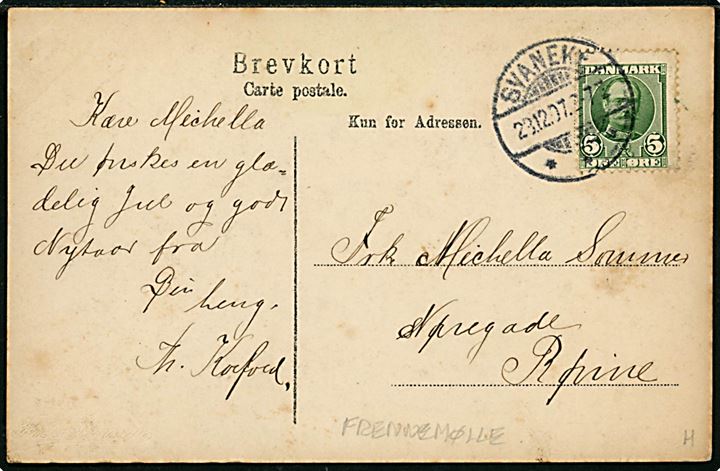 Brevkort
Carte postale.
Kun for Adressen.
SVANEKE
23.12.07.
DANMARK
5 5
ØRE
Kære Michella
Du ønskes en glæ=
delig Jul og godt
Nytaar fra
Din
heng.
Th. Kofoed.
Frk Michella Sommer
Nørregade
Rønne
FRENNEMØLLE
H